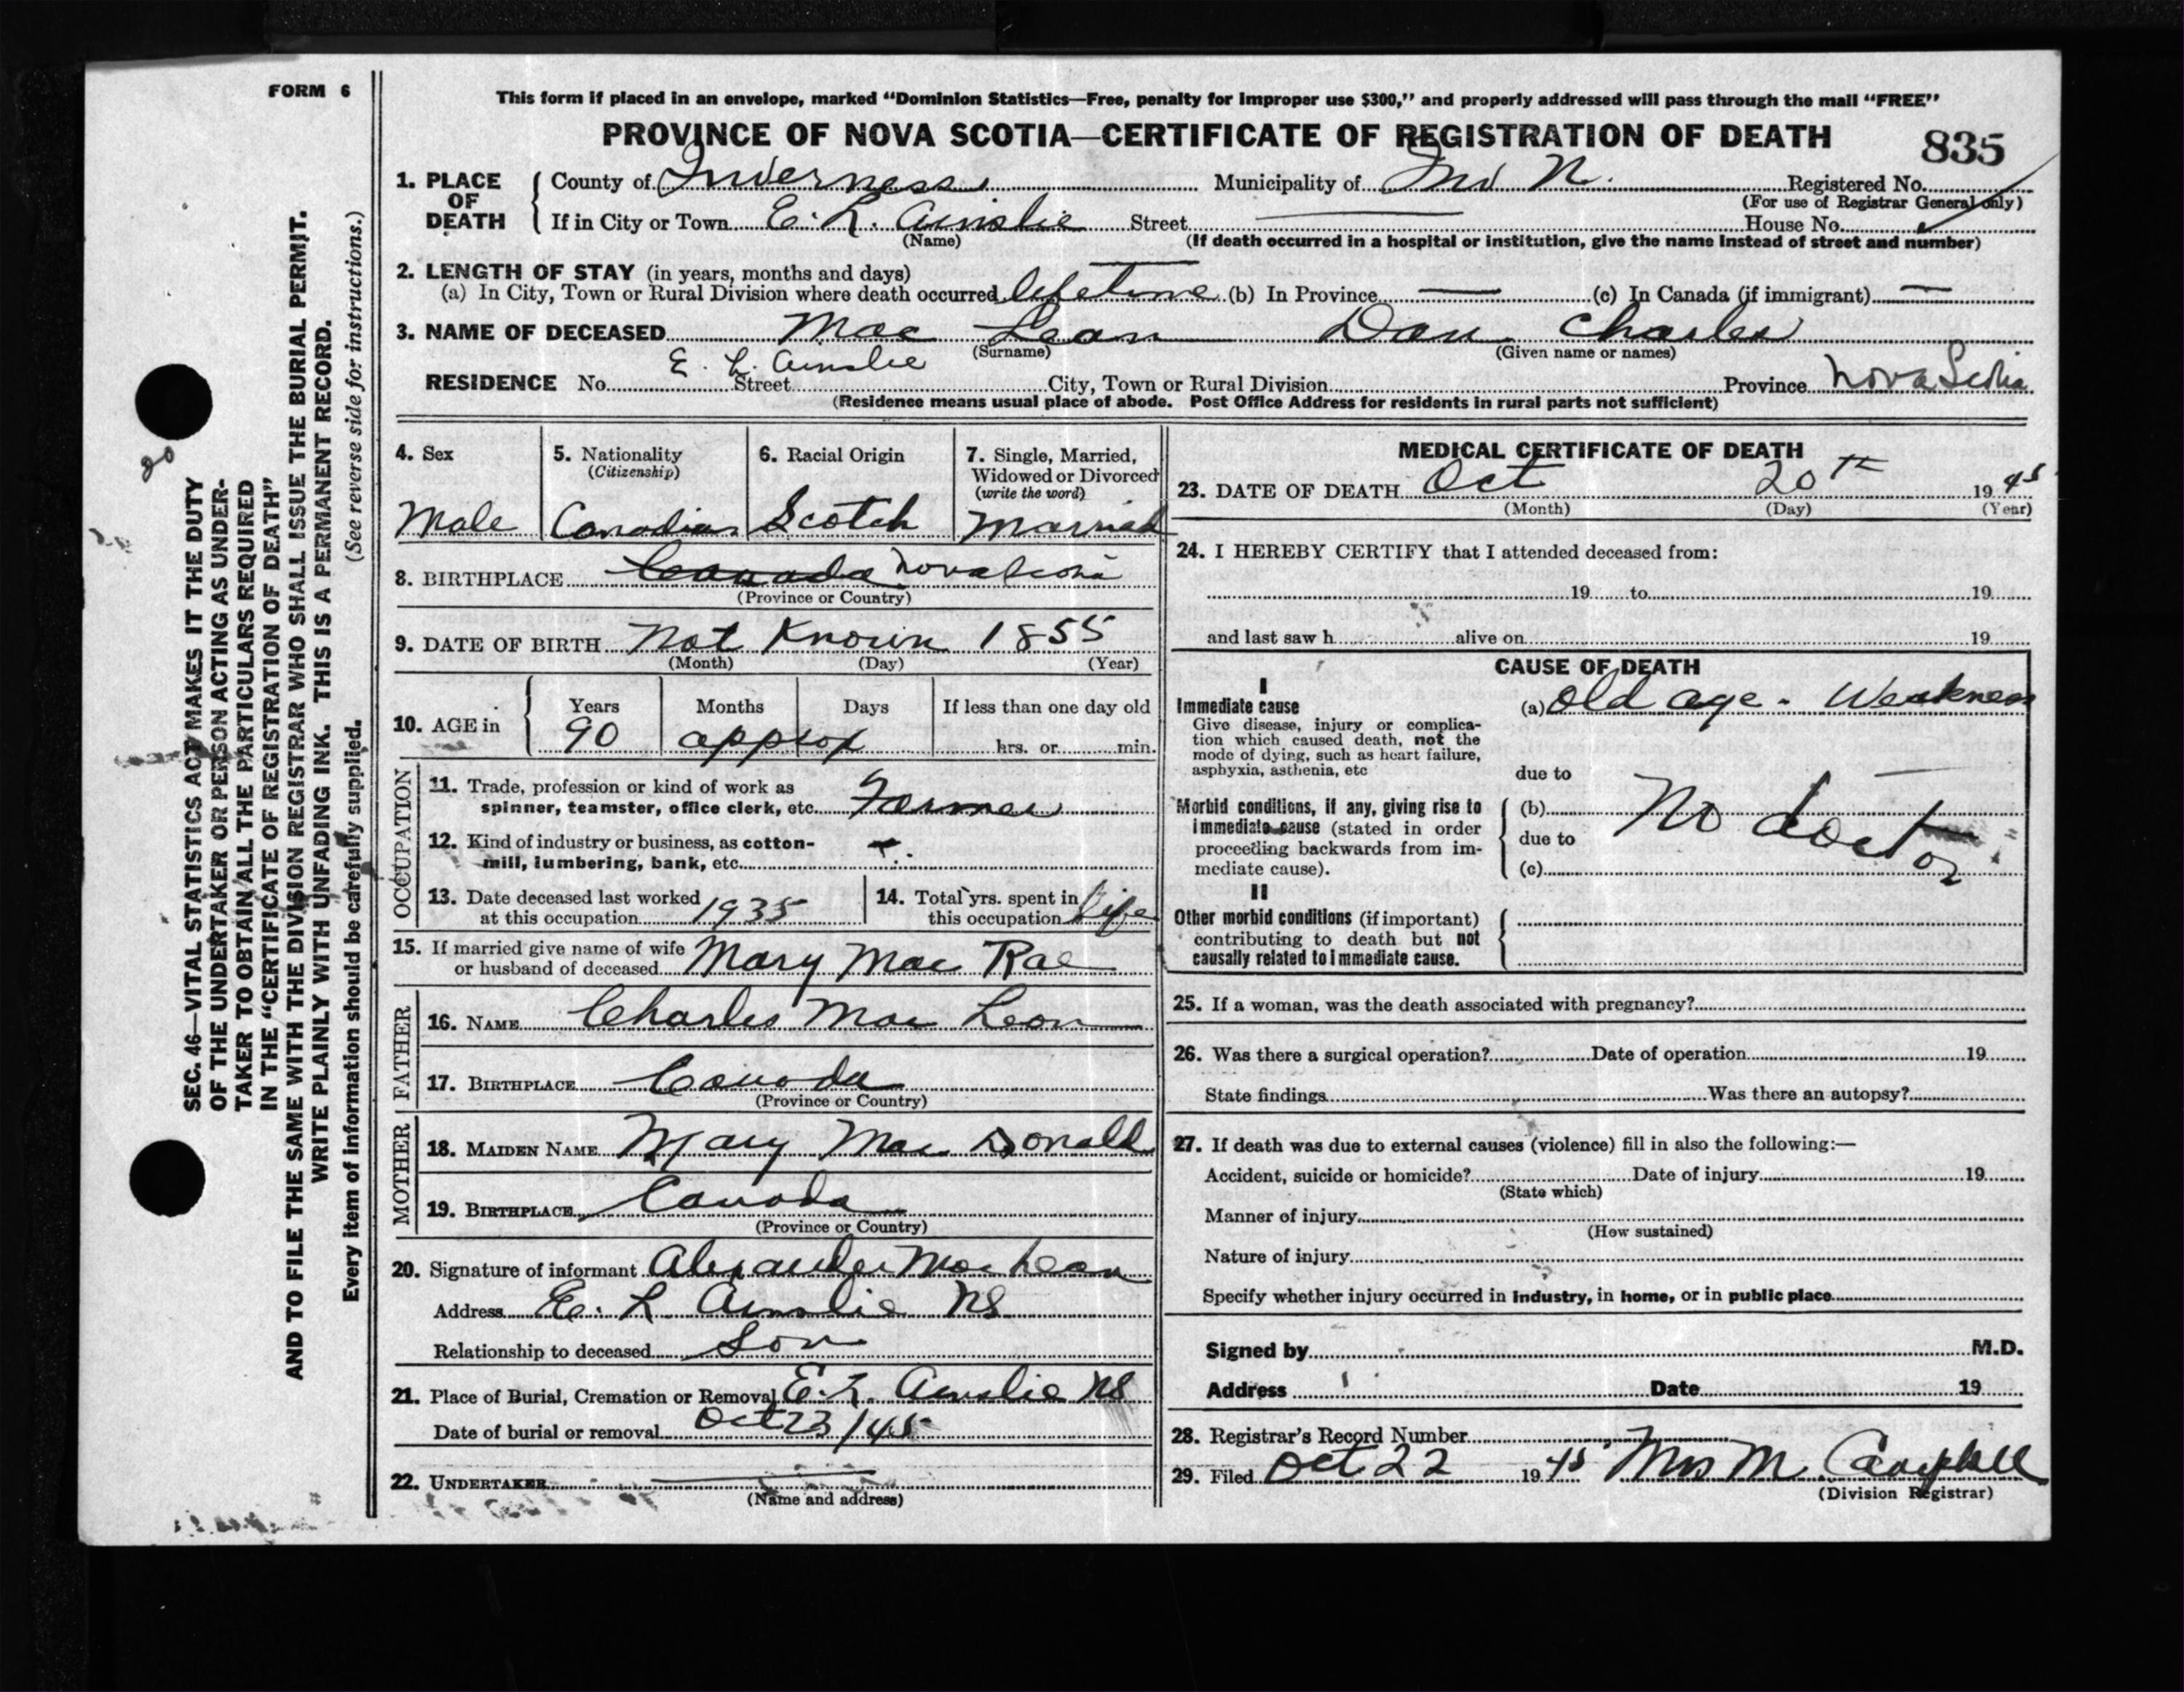 FORM 6
This form if placed in an envelope, marked "Dominion Statistics—Free, penalty for improper use $300," and properly addressed will pass through the mail "FREE"
PROVINCE OF NOVA SCOTIA—CERTIFICATE OF REGISTRATION OF DEATH
835
1. PLACE OF DEATH
County of Inverness Municipality of Inv N. Registered No.
(For use of Registrar General only)
If in City or Town E. L. Ainslie Street House No.
(Name) (If death occurred in a hospital or institution, give the name instead of street and number)
2. LENGTH OF STAY (in years, months and days)
(a) In City, Town or Rural Division where death occurred lifetime (b) In Province — (c) In Canada (if immigrant) —
3. NAME OF DECEASED Mac Lean Dan Charles
(Surname) (Given name or names)
E. L. Ainslie
RESIDENCE No. Street City, Town or Rural Division Province Nova Scotia
(Residence means usual place of abode. Post Office Address for residents in rural parts not sufficient)
4. Sex
Male
5. Nationality
(Citizenship)
Canadian
6. Racial Origin
Scotch
7. Single, Married,
Widowed or Divorced
(write the word)
Married
8. BIRTHPLACE Canada Nova Scotia
(Province or Country)
9. DATE OF BIRTH Not Known 1855
(Month) (Day) (Year)
10. AGE in
Years Months Days If less than one day old
90 approx hrs. or min.
OCCUPATION
11. Trade, profession or kind of work as
spinner, teamster, office clerk, etc. Farmer
12. Kind of industry or business, as cotton-
mill, lumbering, bank, etc.
13. Date deceased last worked
at this occupation 1935
14. Total yrs. spent in
this occupation Life
15. If married give name of wife
or husband of deceased Mary Mac Rae
FATHER
16. NAME Charles Mac Lean
17. BIRTHPLACE Canada
(Province or Country)
MOTHER
18. MAIDEN NAME Mary Mac Donald
19. BIRTHPLACE Canada
(Province or Country)
20. Signature of informant Alexander MacLean
Address E. L Ainslie NS
Relationship to deceased Son
21. Place of Burial, Cremation or Removal E. L. Ainslie NS
Date of burial or removal Oct 23/45
22. UNDERTAKER
(Name and address)
MEDICAL CERTIFICATE OF DEATH
23. DATE OF DEATH Oct 20th 1945
(Month) (Day) (Year)
24. I HEREBY CERTIFY that I attended deceased from:
19 to 19
and last saw h alive on 19
CAUSE OF DEATH
I
Immediate cause
Give disease, injury or complica-
tion which caused death, not the
mode of dying, such as heart failure,
asphyxia, asthenia, etc
(a) Old age - Weakness
due to
Morbid conditions, if any, giving rise to
immediate cause (stated in order
proceeding backwards from im-
mediate cause).
(b)
due to
(c)
No doctor
II
Other morbid conditions (if important)
contributing to death but not
causally related to immediate cause.
25. If a woman, was the death associated with pregnancy?
26. Was there a surgical operation? Date of operation 19
State findings Was there an autopsy?
27. If death was due to external causes (violence) fill in also the following:—
Accident, suicide or homicide? Date of injury 19
(State which)
Manner of injury
(How sustained)
Nature of injury
Specify whether injury occurred in industry, in home, or in public place
Signed by M.D.
Address Date 19
28. Registrar's Record Number
29. Filed Oct 22 1945 Mrs M. Campbell
(Division Registrar)
SEC. 46—VITAL STATISTICS ACT MAKES IT THE DUTY
OF THE UNDERTAKER OR PERSON ACTING AS UNDER-
TAKER TO OBTAIN ALL THE PARTICULARS REQUIRED
IN THE "CERTIFICATE OF REGISTRATION OF DEATH"
AND TO FILE THE SAME WITH THE DIVISION REGISTRAR WHO SHALL ISSUE THE BURIAL PERMIT.
WRITE PLAINLY WITH UNFADING INK. THIS IS A PERMANENT RECORD.
Every item of information should be carefully supplied. (See reverse side for instructions.)
20